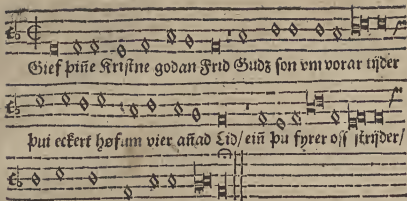 Gief þin̄e Kriſtne godan Frid Gudz ſon vm vorar tijder
þui eckert høfum vier an̄ad Lid/ ein̄ þu fyrer oſſ ſtrijder/